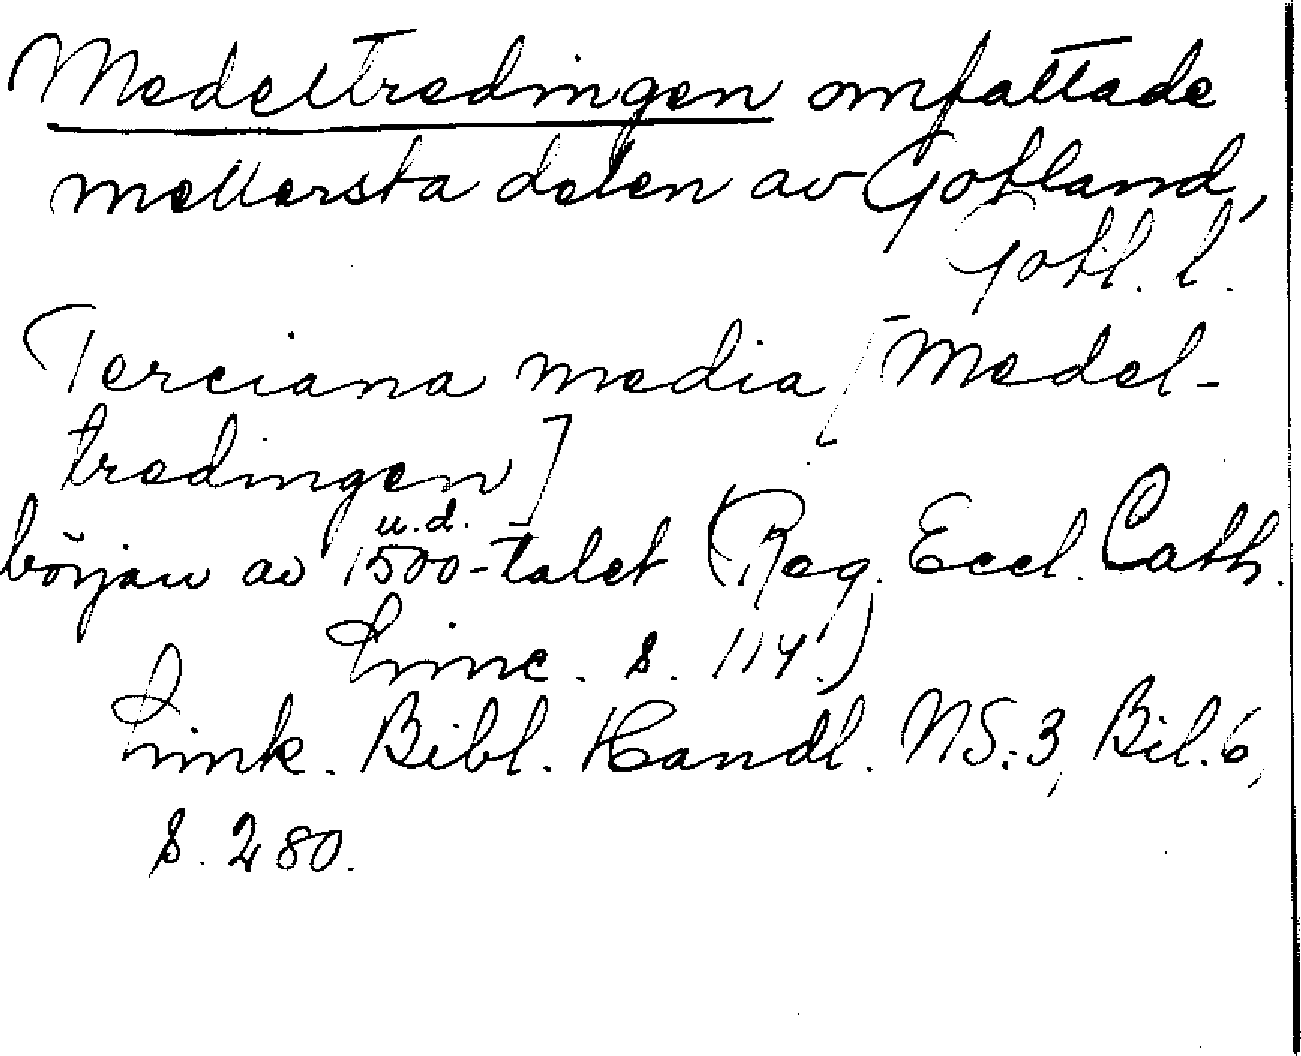 Medeltredingen omfattade
mellersta delen av Gotland,
Gotl. l.
Terciana media [Medel-
tredingen]
u.d.
början av 1500-talet (Reg. Eccl. Cath.
Linc. s. 114.)
Link. Bibl. Handl. NS:3, Bil. 6,
s. 280.